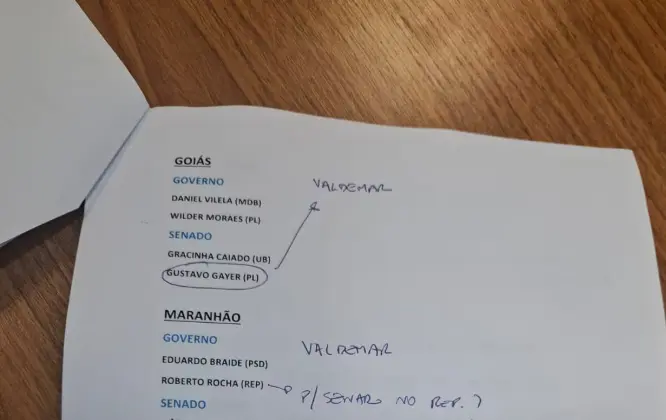 GOIÁS
GOVERNO
VALDEMAR
DANIEL VILELA (MDB)
WILDER MORAES (PL)
SENADO
GRACINHA CAIADO (UB)
GUSTAVO GAYER (PL)
MARANHÃO
GOVERNO
VALDEMAR
EDUARDO BRAIDE (PSD)
ROBERTO ROCHA (REP)
P/ NO REP. ?
SENADO